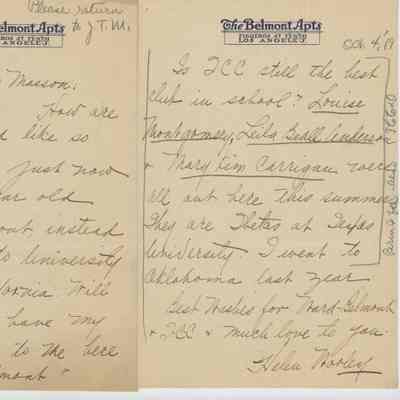 Please return
to J.T.M.
Belmont Apts
FIGUEROA AT TENTH
LOS ANGELES
Masson:
How are
d like so
just now
ear old
out instead
to University
fornia Will
have my
to the here
mont"
The Belmont Apts
FIGUEROA AT TENTH
LOS ANGELES
Oct. 4, '19
Is TCC still the best
club in school? Louise
Montgomery, Leila Beall Anderson
+ Mary Tim Carrigan were
all out here this summer
They are Thetas at Texas
University. I went to
Oklahoma last year
Best Wishes for Ward-Belmont
+ TCC + much love to you.
Helen Worley